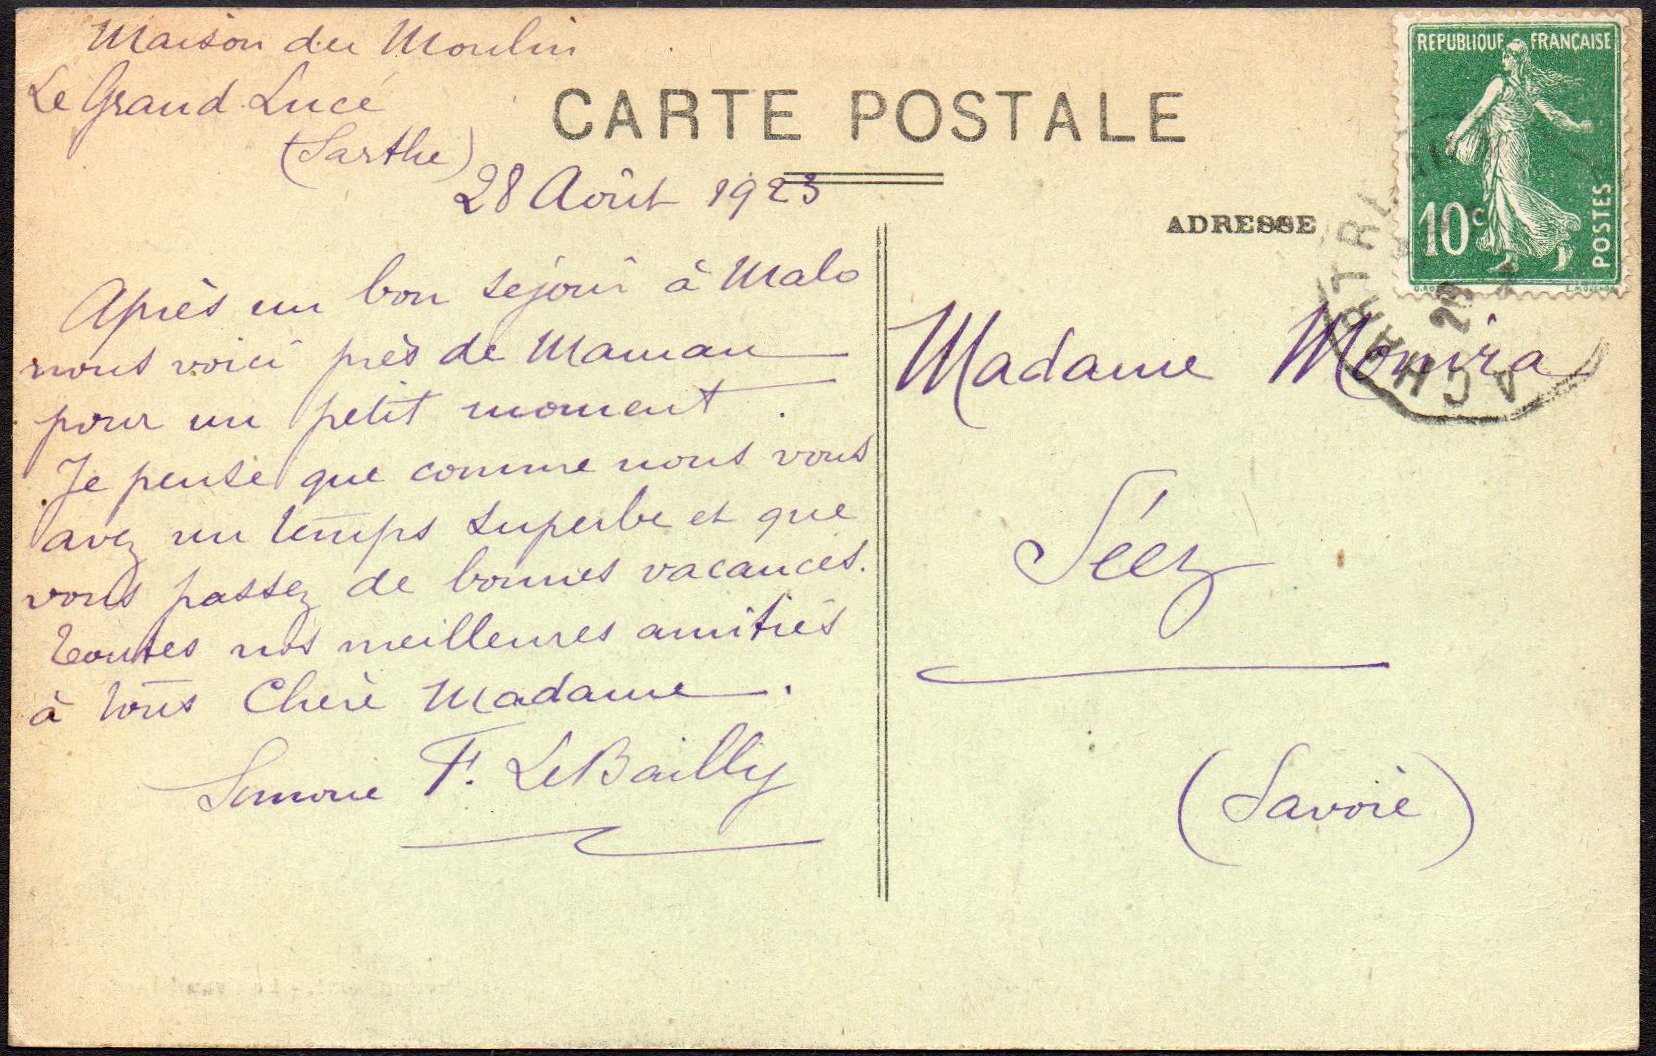 Maison du Moulin
Le Grand Lucé
(Sarthe)
28 Août 1923
CARTE POSTALE
ADRESSE
REPUBLIQUE FRANÇAISE
10c
POSTES
Après un bon séjour à Malo
nous voici près de Maman
pour un petit moment.
Je pense que comme nous vous
avez un temps superbe et que
vous passez de bonnes vacances.
Toutes nos meilleures amitiés
à tous Chère Madame.
Simone F. LeBailly
Madame
Séez
(Savoie)